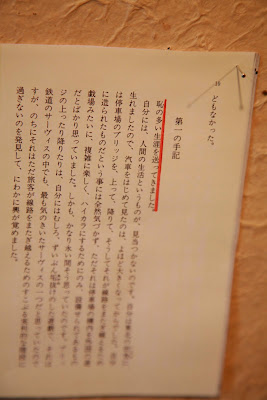 どもなかった。
第一の手記
恥の多い生涯を送ってきました。
自分には、人間の生活というものが、見当つかないのです。自分は東北の田舎に
生れましたので、汽車をはじめて見たのは、よほど大きくなってからでした。自分
は停車場のブリッジを、上って、降りて、そうしてそれが線路をまたぎ越えるため
に造られたものだという事には全然気づかず、ただそれは停車場の構内を外国の遊
戯場みたいに、複雑に楽しく、ハイカラにするためにのみ、設備せられてあるもの
だとばかり思っていました。しかも、かなり永い間そう思っていたのです。ブリッ
ジの上ったり降りたりは、自分にはむしろ、ずいぶん垢抜けのした遊戯で、それは
鉄道のサーヴィスの中でも、最も気のきいたサーヴィスの一つだと思っていたので
すが、のちにそれはただ旅客が線路をまたぎ越えるためのすこぶる実利的な階段に
過ぎないのを発見して、にわかに興が覚めました。